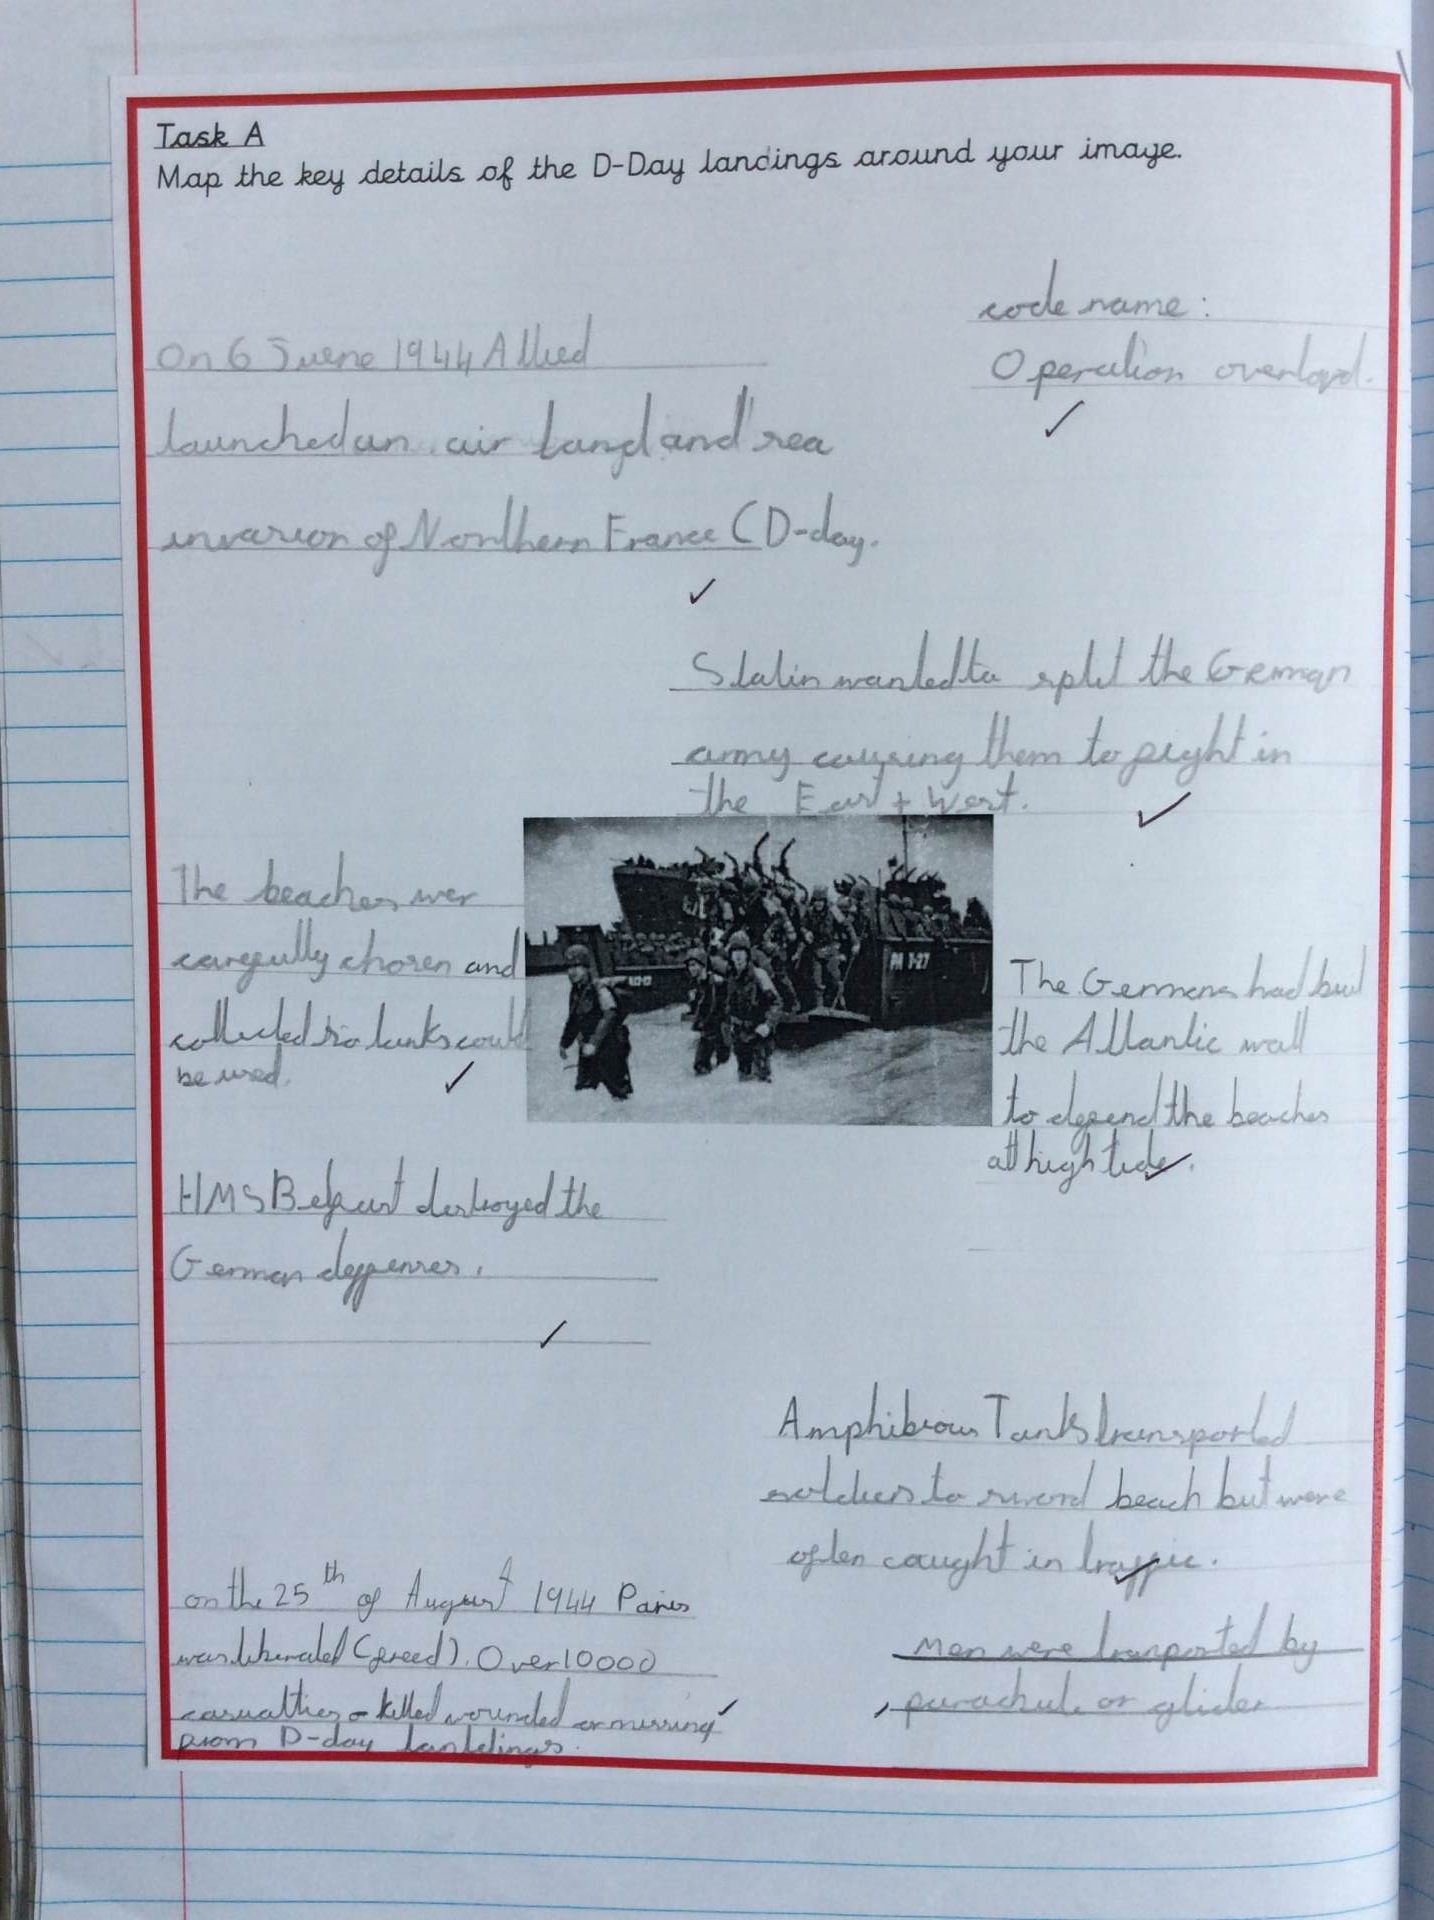 Task A
Map the key details of the D-Day landings around your image.
code name:
Operation overlord.
On 6 Juene 1944 Allied
launched an air land and sea
invasion of Northern France (D-day.
Stalin wanted to split the German
army causing them to fight in
the East + West.
The beaches wer
carefully chosen and
collected so tanks could
be used.
PA 7-27
The Germens had buil
the Atlantic wall
to defend the beaches
at high tide.
HMS Belfast destroyed the
German deffenses.
Amphibious Tanks transported
soldiers to sword beach but were
often caught in traffic.
on the 25th of August 1944 Paris
was liberated (freed). Over 10000
casualties - killed wounded or missing
from D-day landelings.
Men were tranported by
parachute or glider